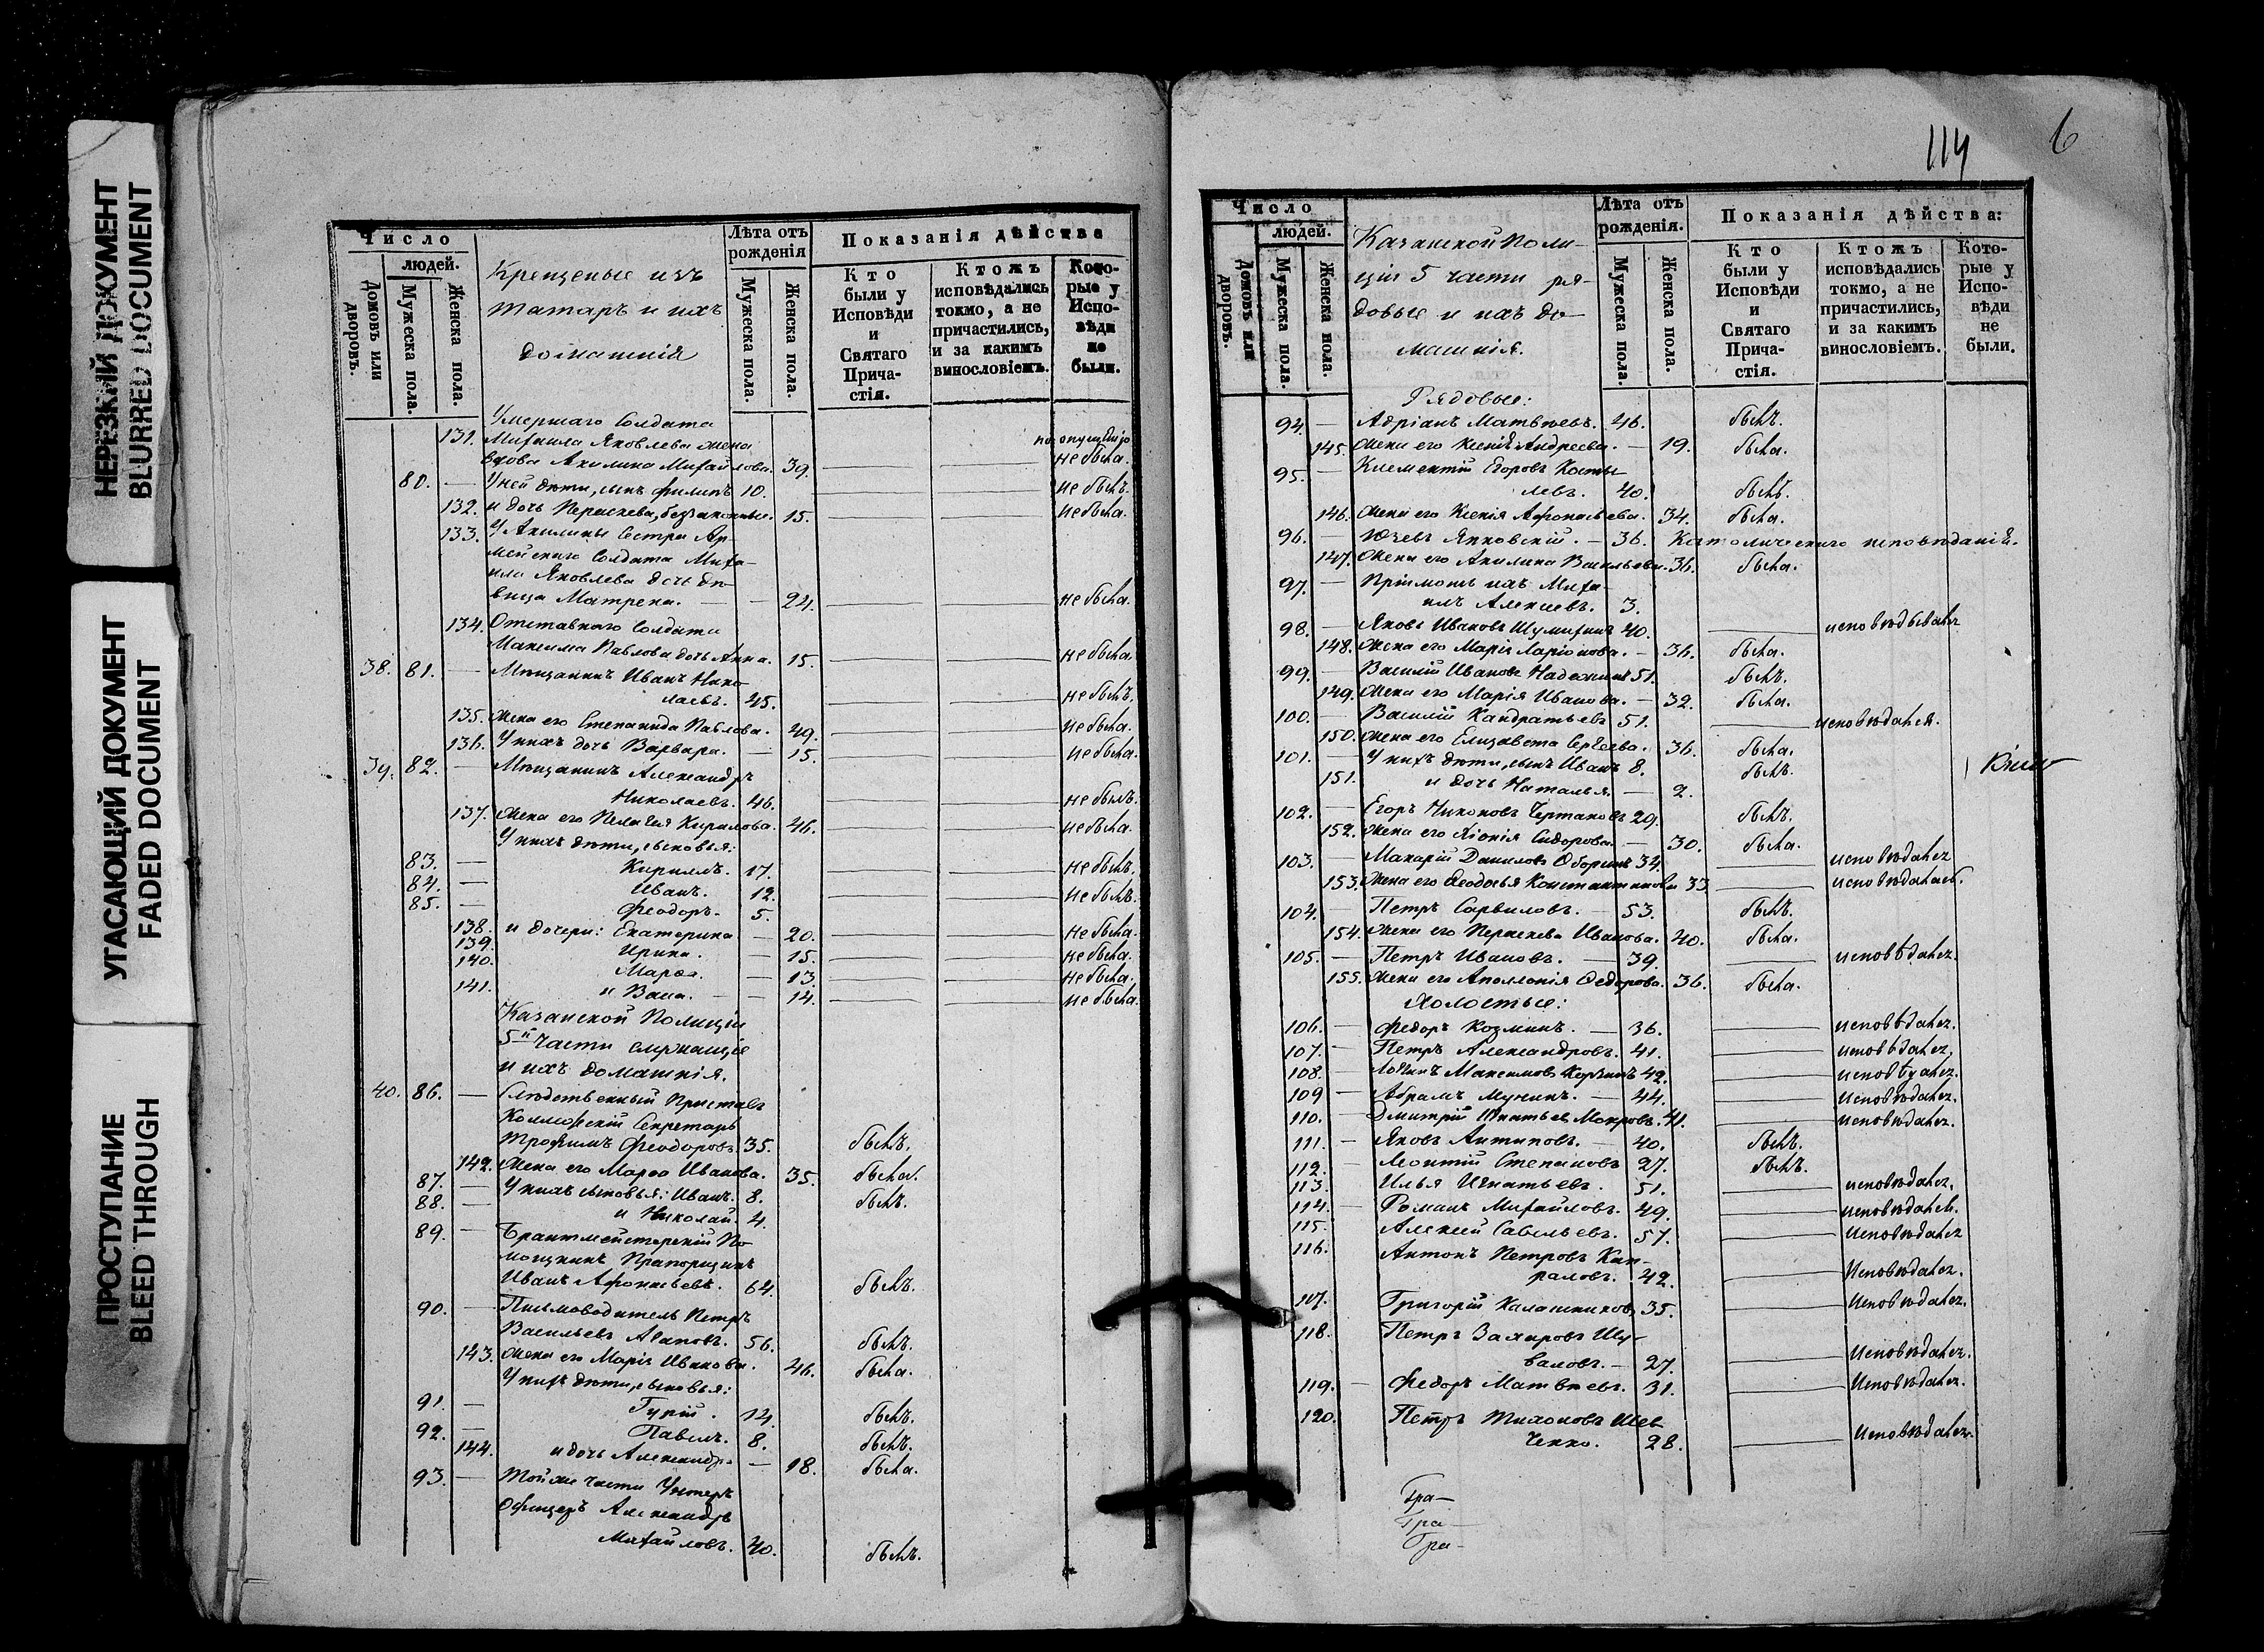 НЕРЕЗКИЙ ДОКУМЕНТ
BLURRED DOCUMENT
УГАСАЮЩИЙ ДОКУМЕНТ
FADED DOCUMENT
ПРОСТУПАНИЕ
BLEED THROUGH
Число
людей.
Домовъ или дворовъ.
Мужеска пола.
Женска пола.
Крещеные изъ
татаръ и ихъ
домашнія
Лѣта отъ рожденія
Мужеска пола.
Женска пола.
Показанія дѣйства
Кто были у Исповѣди и Святаго Прича-стія.
Ктожъ исповѣдались токмо, а не причастились, и за какимъ винословіемъ.
Кото-рые у Испо-вѣди не были.
Умершаго Солдата
131. Михаила Яковлева жена по опущенію
вдова Акилина Михайлова. 39. не была.
80. У ней дѣти, сынъ Филипъ 10. не былъ.
132. и дочь Параскева, беззаконные. 15. не была.
133. У Акилины сестра Ар-
мейскаго Солдата Миха-
ила Яковлева дочь дѣ-
вица Матрена. 24. не была.
134. Отставнаго Солдата
Максима Павлова дочь Анна. 15. не была.
38. 81. Мѣщанинъ Иванъ Нико-
лаевъ. 45. не былъ.
135. Жена его Степанида Павлова. 49. не была.
136. У нихъ дочь Варвара. 15. не была.
39. 82. Мѣщанинъ Александръ
Николаевъ. 46. не былъ.
137. Жена его Пелагея Кирилова. 46. не была.
У нихъ дѣти, сыновья:
83. Кириллъ. 17. не былъ.
84. Иванъ. 12. не былъ.
85. Феодоръ. 5.
138. и дочери: Екатерина 20. не была.
139. Ирина. 15. не была.
140. Марѳа. 13. не была.
141. и Васа. 14. не была.
Казанской Полиціи
5й части служащіе
и ихъ домашнія.
40. 86. Слѣдственный Приставъ
Коллежскій Секретарь
Трофимъ Феодоровъ 35. былъ.
142. Жена его Марѳа Иванова. 35. была.
87. У нихъ сыновья: Иванъ. 8. былъ.
88. и Николай. 4.
89. Брантмейстерскій По-
мощникъ Прапорщикъ
Иванъ Афонасьевъ. 64. былъ.
90. Письмоводитель Петръ
Васильевъ Агаповъ. 56. былъ.
143. Жена его Марія Иванова. 46. была.
У нихъ дѣти, сыновья:
91. Гурій. 14. былъ.
92. Павелъ. 8. былъ.
144. и дочь Александра 18. была.
93. Той же части Унтеръ
Офицеръ Александръ
Михайловъ. 40. былъ.
114 6
Число
людей.
Домовъ или дворовъ.
Мужеска пола.
Женска пола.
Казанской Поли-
ціи 5 части ря-
довые и ихъ до-
машнія.
Лѣта отъ рожденія.
Мужеска пола.
Женска пола.
Показанія дѣйства:
Кто были у Исповѣди и Святаго Прича-стія.
Ктожъ исповѣдались токмо, а не причастились, и за какимъ винословіемъ.
Кото-рые у Испо-вѣди не были.
Рядовые:
94. Адріанъ Матвѣевъ. 46. былъ.
145. Жена его Ксенія Андреева. 19. была.
95. Клементій Егоровъ Косты-
левъ. 40. былъ.
146. Жена его Ксенія Афонасьева. 34. была.
96. Янковскій. 36. Католическаго исповѣданія.
147. Жена его Акилина Васильева. 36. была.
97. Пріимышъ ихъ Миха-
илъ Алексѣевъ. 3.
98. Яковъ Ивановъ Шумихинъ 40. исповѣдывался
148. Жена его Марія Ларіонова. 36. была.
99. Василій Ивановъ Надежинъ 51. былъ.
149. Жена его Марія Иванова. 32. была.
100. Василій Кандратьевъ 51. исповѣдался.
150. Жена его Елизавета Сергеева. 36. была.
101. У нихъ дѣти, сынъ Иванъ 8. былъ.
151. и дочь Наталья. 2.
102. Егоръ Никоновъ Чертановъ 29. былъ.
152. Жена его Хіонія Сидорова. 30. была.
103. Макарій Даниловъ Оборинъ 34. исповѣдался
153. Жена его Ѳеодосья Константинова 33. исповѣдалась.
104. Петръ Сарвиловъ. 53. былъ.
154. Жена его Параскева Иванова. 40. была.
105. Петръ Ивановъ. 39. исповѣдался.
155. Жена его Аполлонія Ѳедорова. 36. была.
Холостые:
106. Федоръ Козминъ. 36. исповѣдался.
107. Петръ Александровъ. 41. исповѣдался.
108. Логинъ Максимовъ 42. исповѣдался.
109 Абрамъ Мунинъ. 44. исповѣдался.
110. Дмитрій Игнатьевъ Мокровъ. 41. исповѣдался.
111. Яковъ Антиповъ. 40. былъ.
112. Леонтій Степановъ 27. былъ.
113. Илья Игнатьевъ. 51. исповѣдался.
114. Романъ Михайловъ. 49. исповѣдался.
115. Алексей Савельевъ. 57. исповѣдался
116. Антонъ Петровъ Кап-
раловъ. 42. исповѣдался.
117. Григорій Калашниковъ 35. исповѣдался.
118. Петръ Захаровъ Шу-
валовъ. 27. исповѣдался.
119. Федоръ Матвѣевъ. 31. исповѣдался.
120. Петръ Тихоновъ Шев
ченко. 28. исповѣдался.
Гра-
Гра-
Гра-